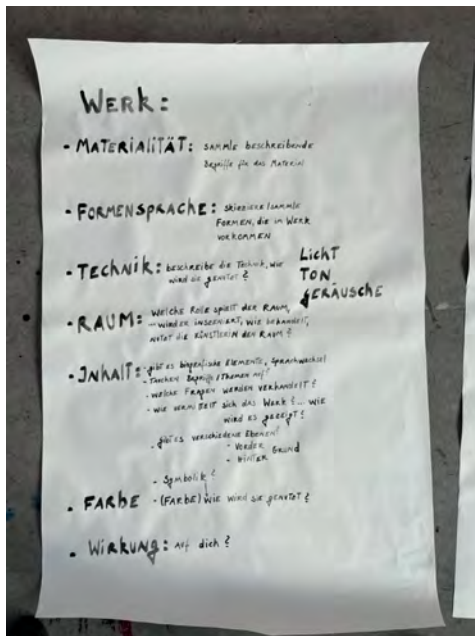 WERK:
- MATERIALITÄT: SAMMLE BESCHREIBENDE
Begriffe für das Material
- FORMENSPRACHE: SKIZZIERE/SAMMLE
FORMEN, DIE IM WERK
VORKOMMEN
- TECHNIK: BESCHREIBE DIE TECHNIK, WIE
WIRD SIE GENUTZT?
LICHT
TON
GERÄUSCHE
- RAUM: WELCHE ROLLE SPIELT DER RAUM,
WIRD ER INSZENIERT, WIE BEHANDELT,
NUTZT DIE KÜNSTLERIN DEN RAUM?
- INHALT: - gibt ES biografische ELEMENTE, SPRACHWECHSEL
- TAUCHEN Begriffe/THEMEN AUF?
- WELCHE FRAGEN WERDEN VERHANDELT?
- WIE VERMITTELT SICH DAS WERK? ... WIE
WIRD ES GEZEIGT?
- gibt ES VERSCHIEDENE EBENEN?
- VORDER
- HINTER GRUND
- Symbolik?
- FARBE - (FARBE) WIE WIRD SIE GENUTZT?
- WIRKUNG: AUF dich?